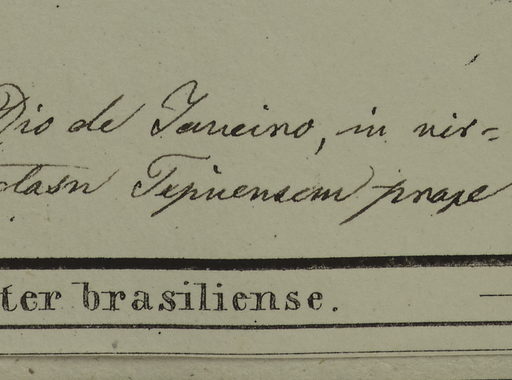 Rio de Janeiro, in vir=
Tijucensem prope
ter brasiliense.